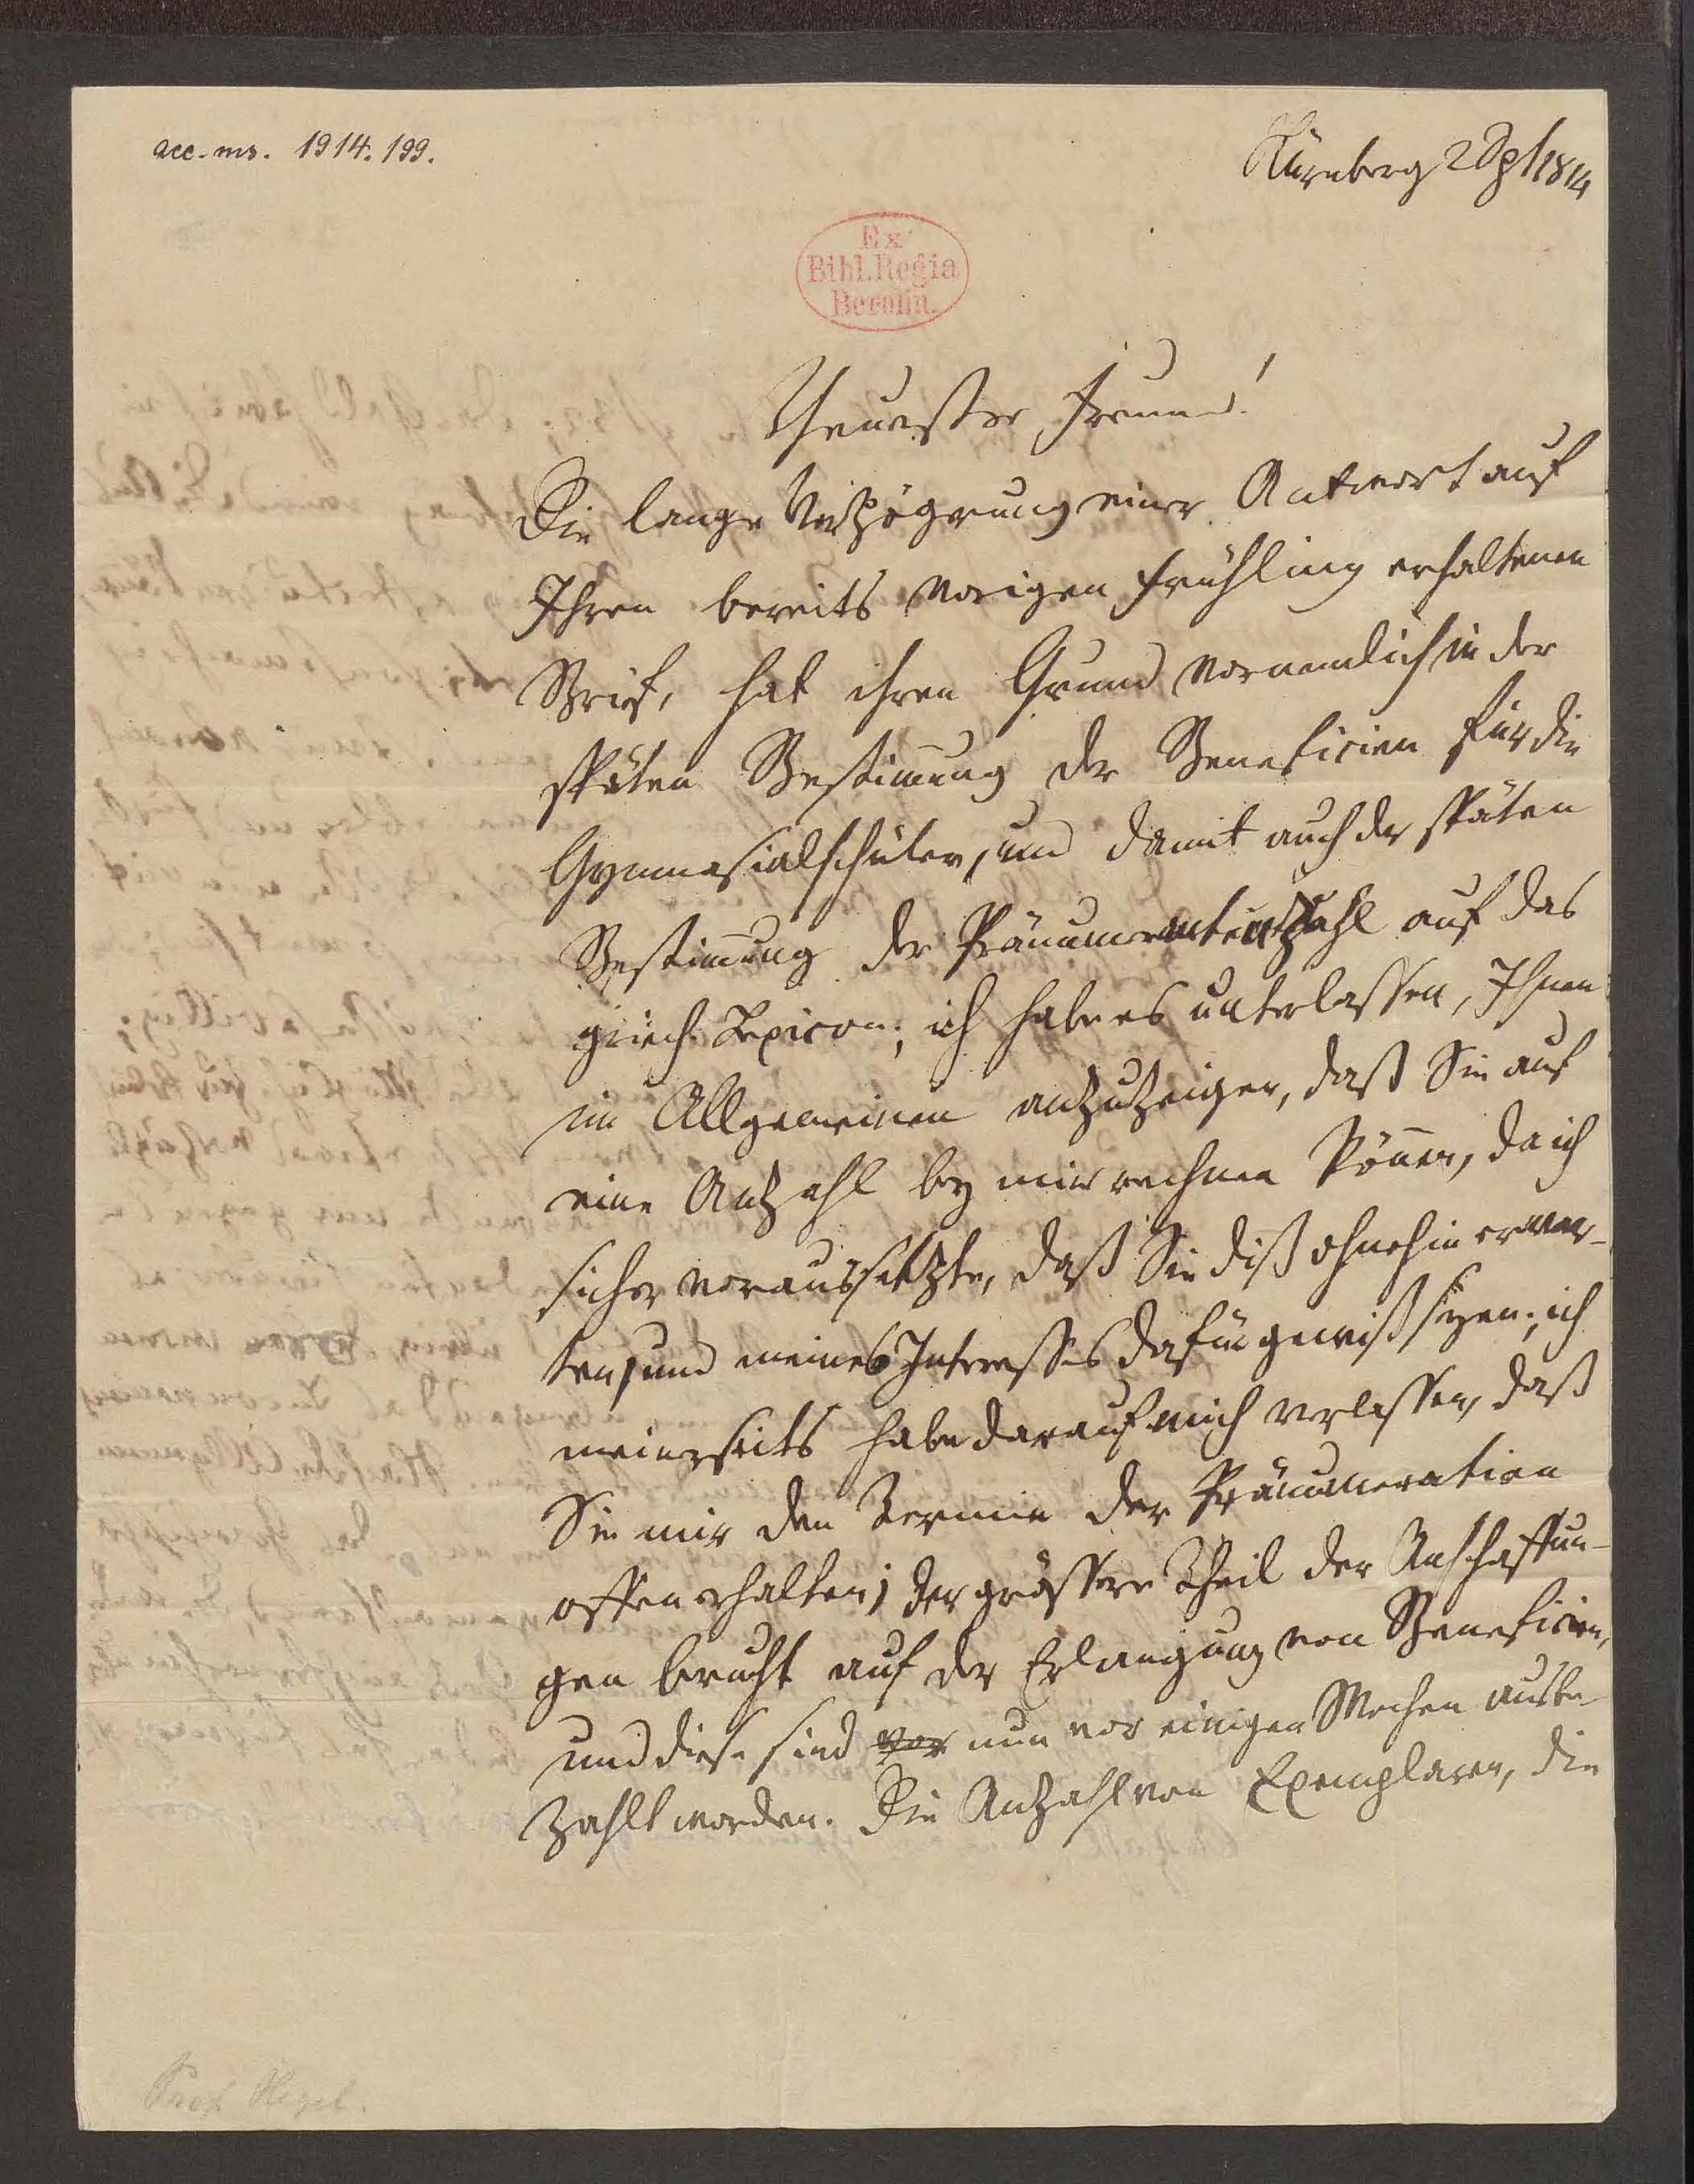 acc. ms. 1914. 199.
Nürnberg 2 Spt 1814
Ex
Bibl. Regia
Berolin.
Theuerster Freund!
Die lange Verzögerung einer Antwort auf
Ihren bereits vorigen Frühling erhaltenen
Brief, hat ihren Grund vornemlich in der
späten Bestim̄ung der Beneficien für die
Gymnasialschüler, und damit auch der späten
Bestim̄ung der Pränumerantenzahl auf das
griech. Lexicon; ich habe es unterlassen, Ihnen
im Allgemeinen anzuzeigen, daß Sie auf
eine Anzahl bey mir rechnen kön̄en, da ich
sicher voraussetzte, daß Sie diß ohnehin erwar-
ten, und meines Interesses dafür gewiß seyen; ich
meinerseits habe darauf mich verlassen, daß
Sie mir den Termin der Pränumeration
offen erhalten; der grössere Theil der Anschaffun-
gen beruht auf der Erlangung von Beneficien,
und diese sind vor nun vor einigen Wochen ausbe-
zahlt worden. Die Anzahl von Exemplaren, die
Prof. Hegel.